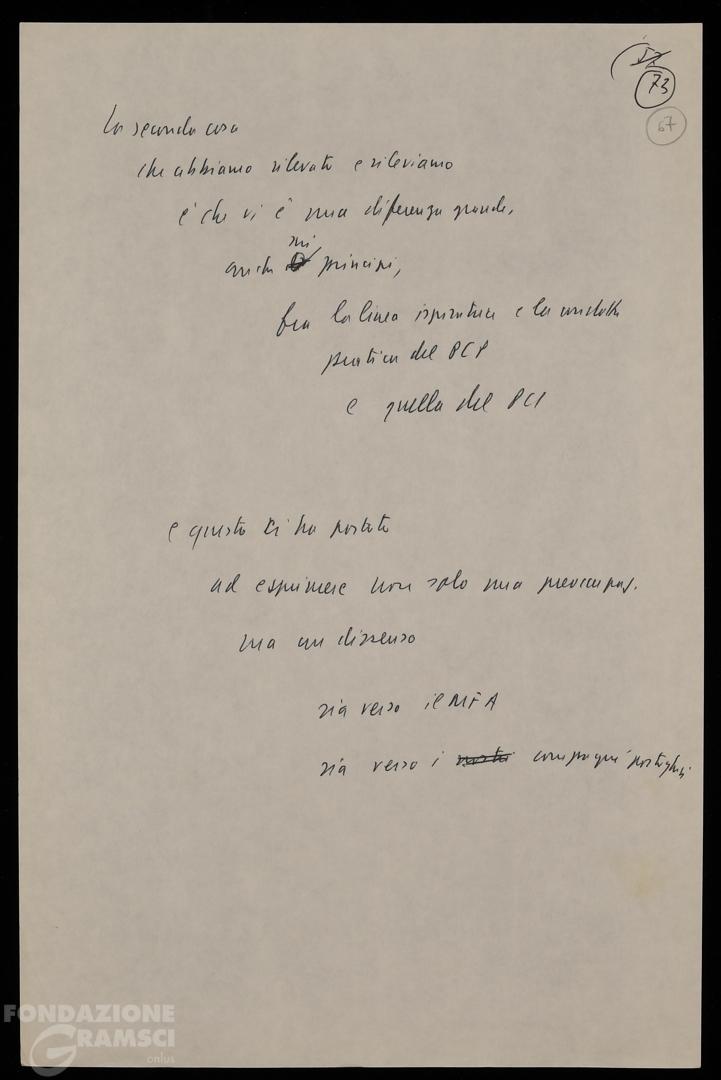 73
67
La seconda cosa
che abbiamo rilevato e rileviamo
è che vi è una differenza grande,
sui
anche principi,
fra la linea ispiratrice e la condotta
pratica del PCP
e quella del PCI
e questo ci ha portato
ad esprimere non solo una preoccupaz.
ma un dissenso
sia verso il MFA
sia verso i nostri compagni portoghesi
FONDAZIONE
GRAMSCI
onlus